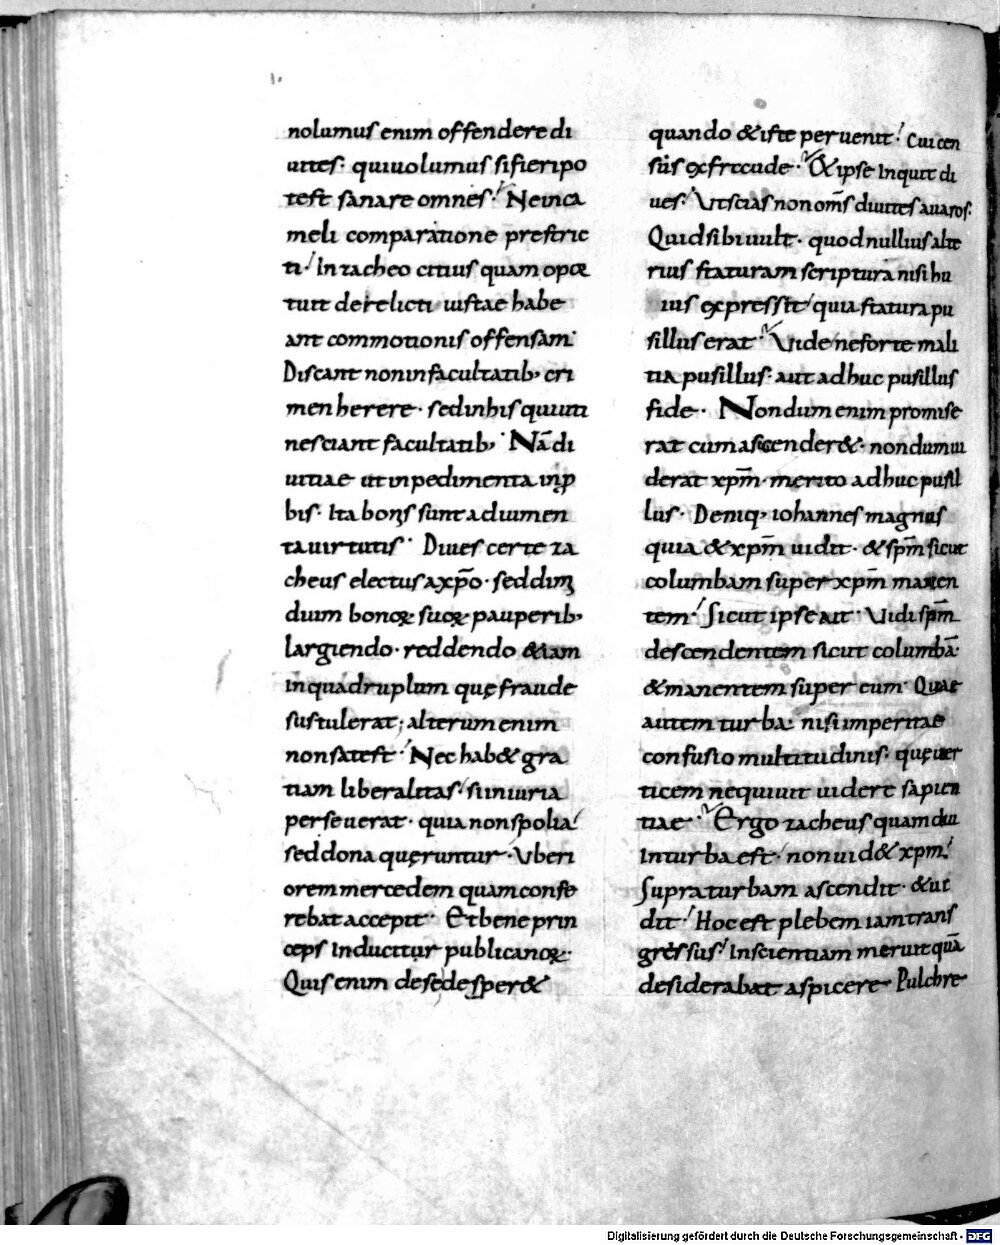 nolumus enim offendere di
uites· quiuolumus si fieri po
test sanare omnes! Ne in ca
meli comparatione prestric
ti! In zacheo citius quam opor
tuit derelicti iustae habe
ant commotionis offensam·
Discant non in facultatib; cri
men herere· sed in his qui uti
nesciant facultatib; Nā di
uitiae ut inpedimenta inp
bis· Ita bonis sunt adiumen
ta uirtutis· Diues certe za
cheus electus a xp̄o· sed dimi
dium bonorum suorum pauperib;
largiendo· reddendo &iam
in quadruplum quę fraude
sustulerat; alterum enim
non sat est! Nec hab& gra
tiam liberalitas! si iniuria
perseuerat· quia non spolia/
sed dona quęruntur· Vberi
orem mercedem quam confe
rebat accepit· Et bene prin
ceps inducitur publicanorum·
Quis enim de se desper&
quando & iste peruenit! Cui cen
sus ex fraude· & ipse Inquit di
ues! Vt scias non om̄s diuites auaros·
Quid sibi uult· quod nullius alte
rius staturam scriptura nisi hu
ius expressit/ quia statura pu
sillus erat· Vide/ ne forte mali
tia pusillus· aut adhuc pusillus
fide· Nondum enim promise
rat cum ascender&· nondum ui
derat xp̄m· merito adhuc pusil
lus· Deniq; iohannes magnus
quia & xp̄m uidit· & sp̄m sicut
columbam super xp̄m manen
tem! Sicut ipse ait· Vidi sp̄m
descendentem sicut columbā·
& manentem super eum· Quae
autem turba· nisi imperitae
confusio multitudinis· quę uer
ticem nequiuit uidere sapien
tiae· Ergo zacheus quamdiu
In turba est/ non uid& xp̄m!
Supra turbam ascendit· & ui
dit! Hoc est plebem iam trans
gressus! Inscientiam meruit quā
desiderabat aspicere· Pulchre
Digitalisierung gefördert durch die Deutsche Forschungsgemeinschaft - DFG